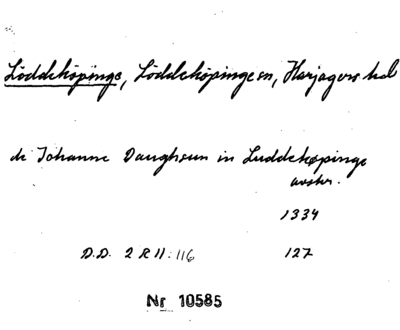 Löddeköpinge, Löddeköpinge sn, Harjagers hd
de Johanne Daughsun in Luddekøpinge
avskr.
1334
D.D. 2 R 11:116 127
Nr 10585